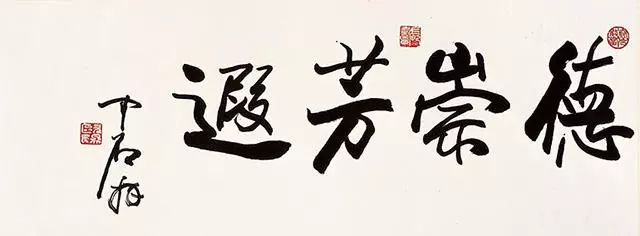 德崇芳遐
中石